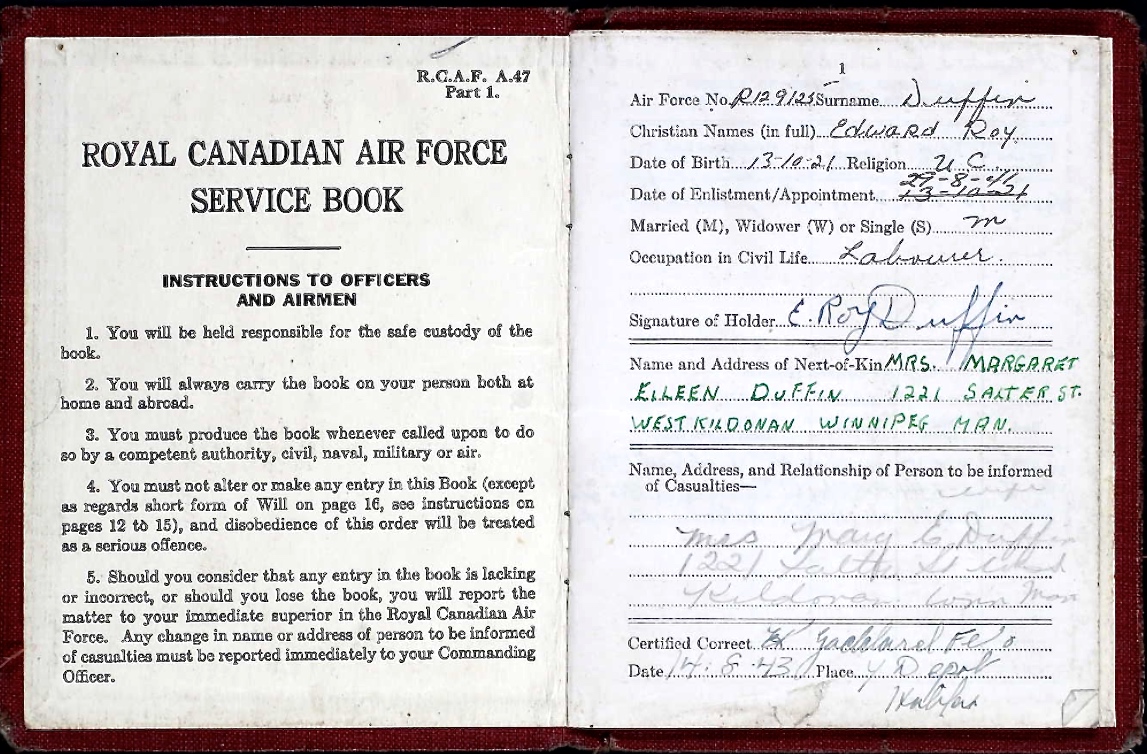 R.C.A.F. A.47
Part 1.
ROYAL CANADIAN AIR FORCE
SERVICE BOOK
INSTRUCTIONS TO OFFICERS
AND AIRMEN
1. You will be held responsible for the safe custody of the
book.
2. You will always carry the book on your person both at
home and abroad.
3. You must produce the book whenever called upon to do
so by a competent authority, civil, naval, military or air.
4. You must not alter or make any entry in this Book (except
as regards short form of Will on page 16, see instructions on
pages 12 to 15), and disobedience of this order will be treated
as a serious offence.
5. Should you consider that any entry in the book is lacking
or incorrect, or should you lose the book, you will report the
matter to your immediate superior in the Royal Canadian Air
Force. Any change in name or address of person to be informed
of casualties must be reported immediately to your Commanding
Officer.
1
Air Force No. R129125 Surname Duffin
Christian Names (in full) Edward Roy
Date of Birth 13-10-21 Religion U C
29-8-41
Date of Enlistment/Appointment 13-10-21
Married (M), Widower (W) or Single (S) m
Occupation in Civil Life Labourer.
Signature of Holder E. Roy Duffin
Name and Address of Next-of-Kin MRS. MARGARET
EILEEN DUFFIN 1221 SALTER ST.
WEST KILDONAN WINNIPEG MAN.
Name, Address, and Relationship of Person to be informed
of Casualties—
wife
Mrs Marg E Duffin
1221 Salter St West
Kildonan Winn Man
Certified Correct
Date 14.8.43 Place Y Depot
Halifax